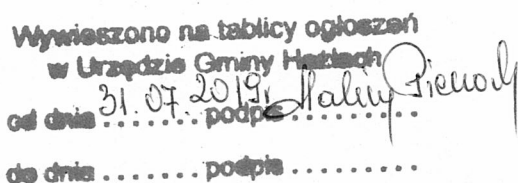 Wywieszono na tablicy ogłoszeń
w Urzędzie Gminy Herbach
od dnia 31.07.2019r. podpis Halina Pienioch
do dnia ........ podpis ..........